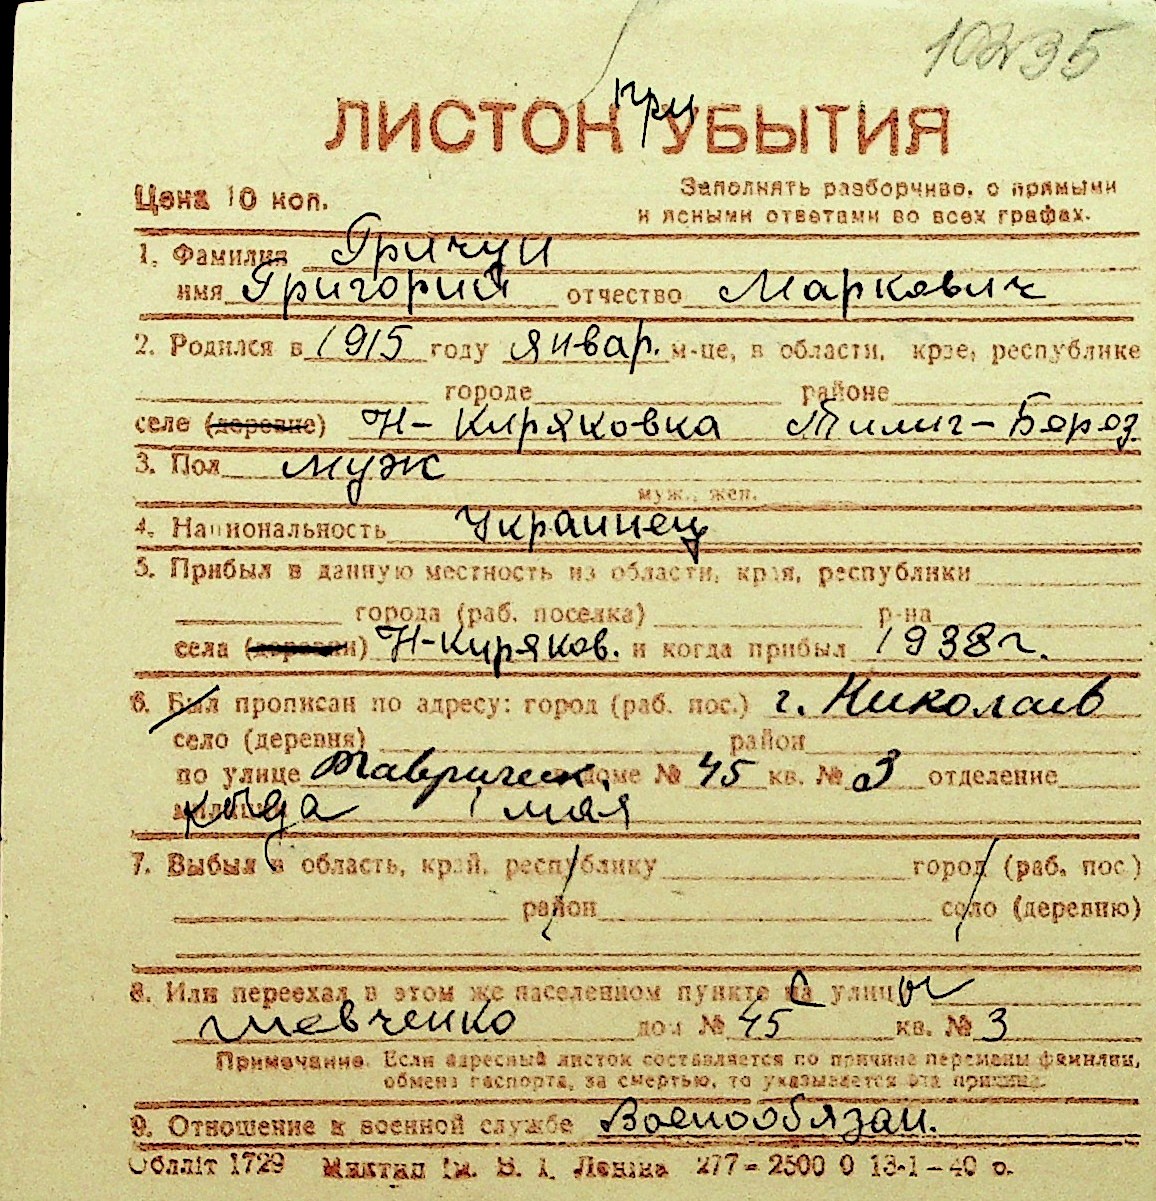 10295
ЛИСТОК при УБЫТИЯ
Цена 10 коп.
Заполнять разборчиво, с прямыми
и ясными ответами во всех графах.
1. Фамилия Гричун
имя Григорий отчество Маркович
2. Родился в 1915 году январ. м-це, в области, крае, республике
городе районе
селе (деревне) Н-Киряковка Тилиг-Берез.
3. Пол муж
муж., жен.
4. Национальность Украинец
5. Прибыл в данную местность из области, края, республики
города (раб. поселка) р-на
села (деревни) Н-Киряков. и когда прибыл 1938 г.
6. Был прописан по адресу: город (раб. пос.) г. Николаев
село (деревня) район
по улице Таврическ доме № 45 кв. № 3 отделение
милиции когда 1 мая
7. Выбыл в область, край, республику город (раб. пос.)
район село (деревню)
8. Или переехал в этом же населенном пункте с улицы
Шевченко дом № 45 кв. № 3
Примечание. Если адресный листок составляется по причине перемены фамилии,
обмена паспорта, за смертью, то указывается эта причина.
9. Отношение к военной службе Военообязан.
Облліт 1729 ім. В. І. Леніна 277–2500 0 13-1–40 р.